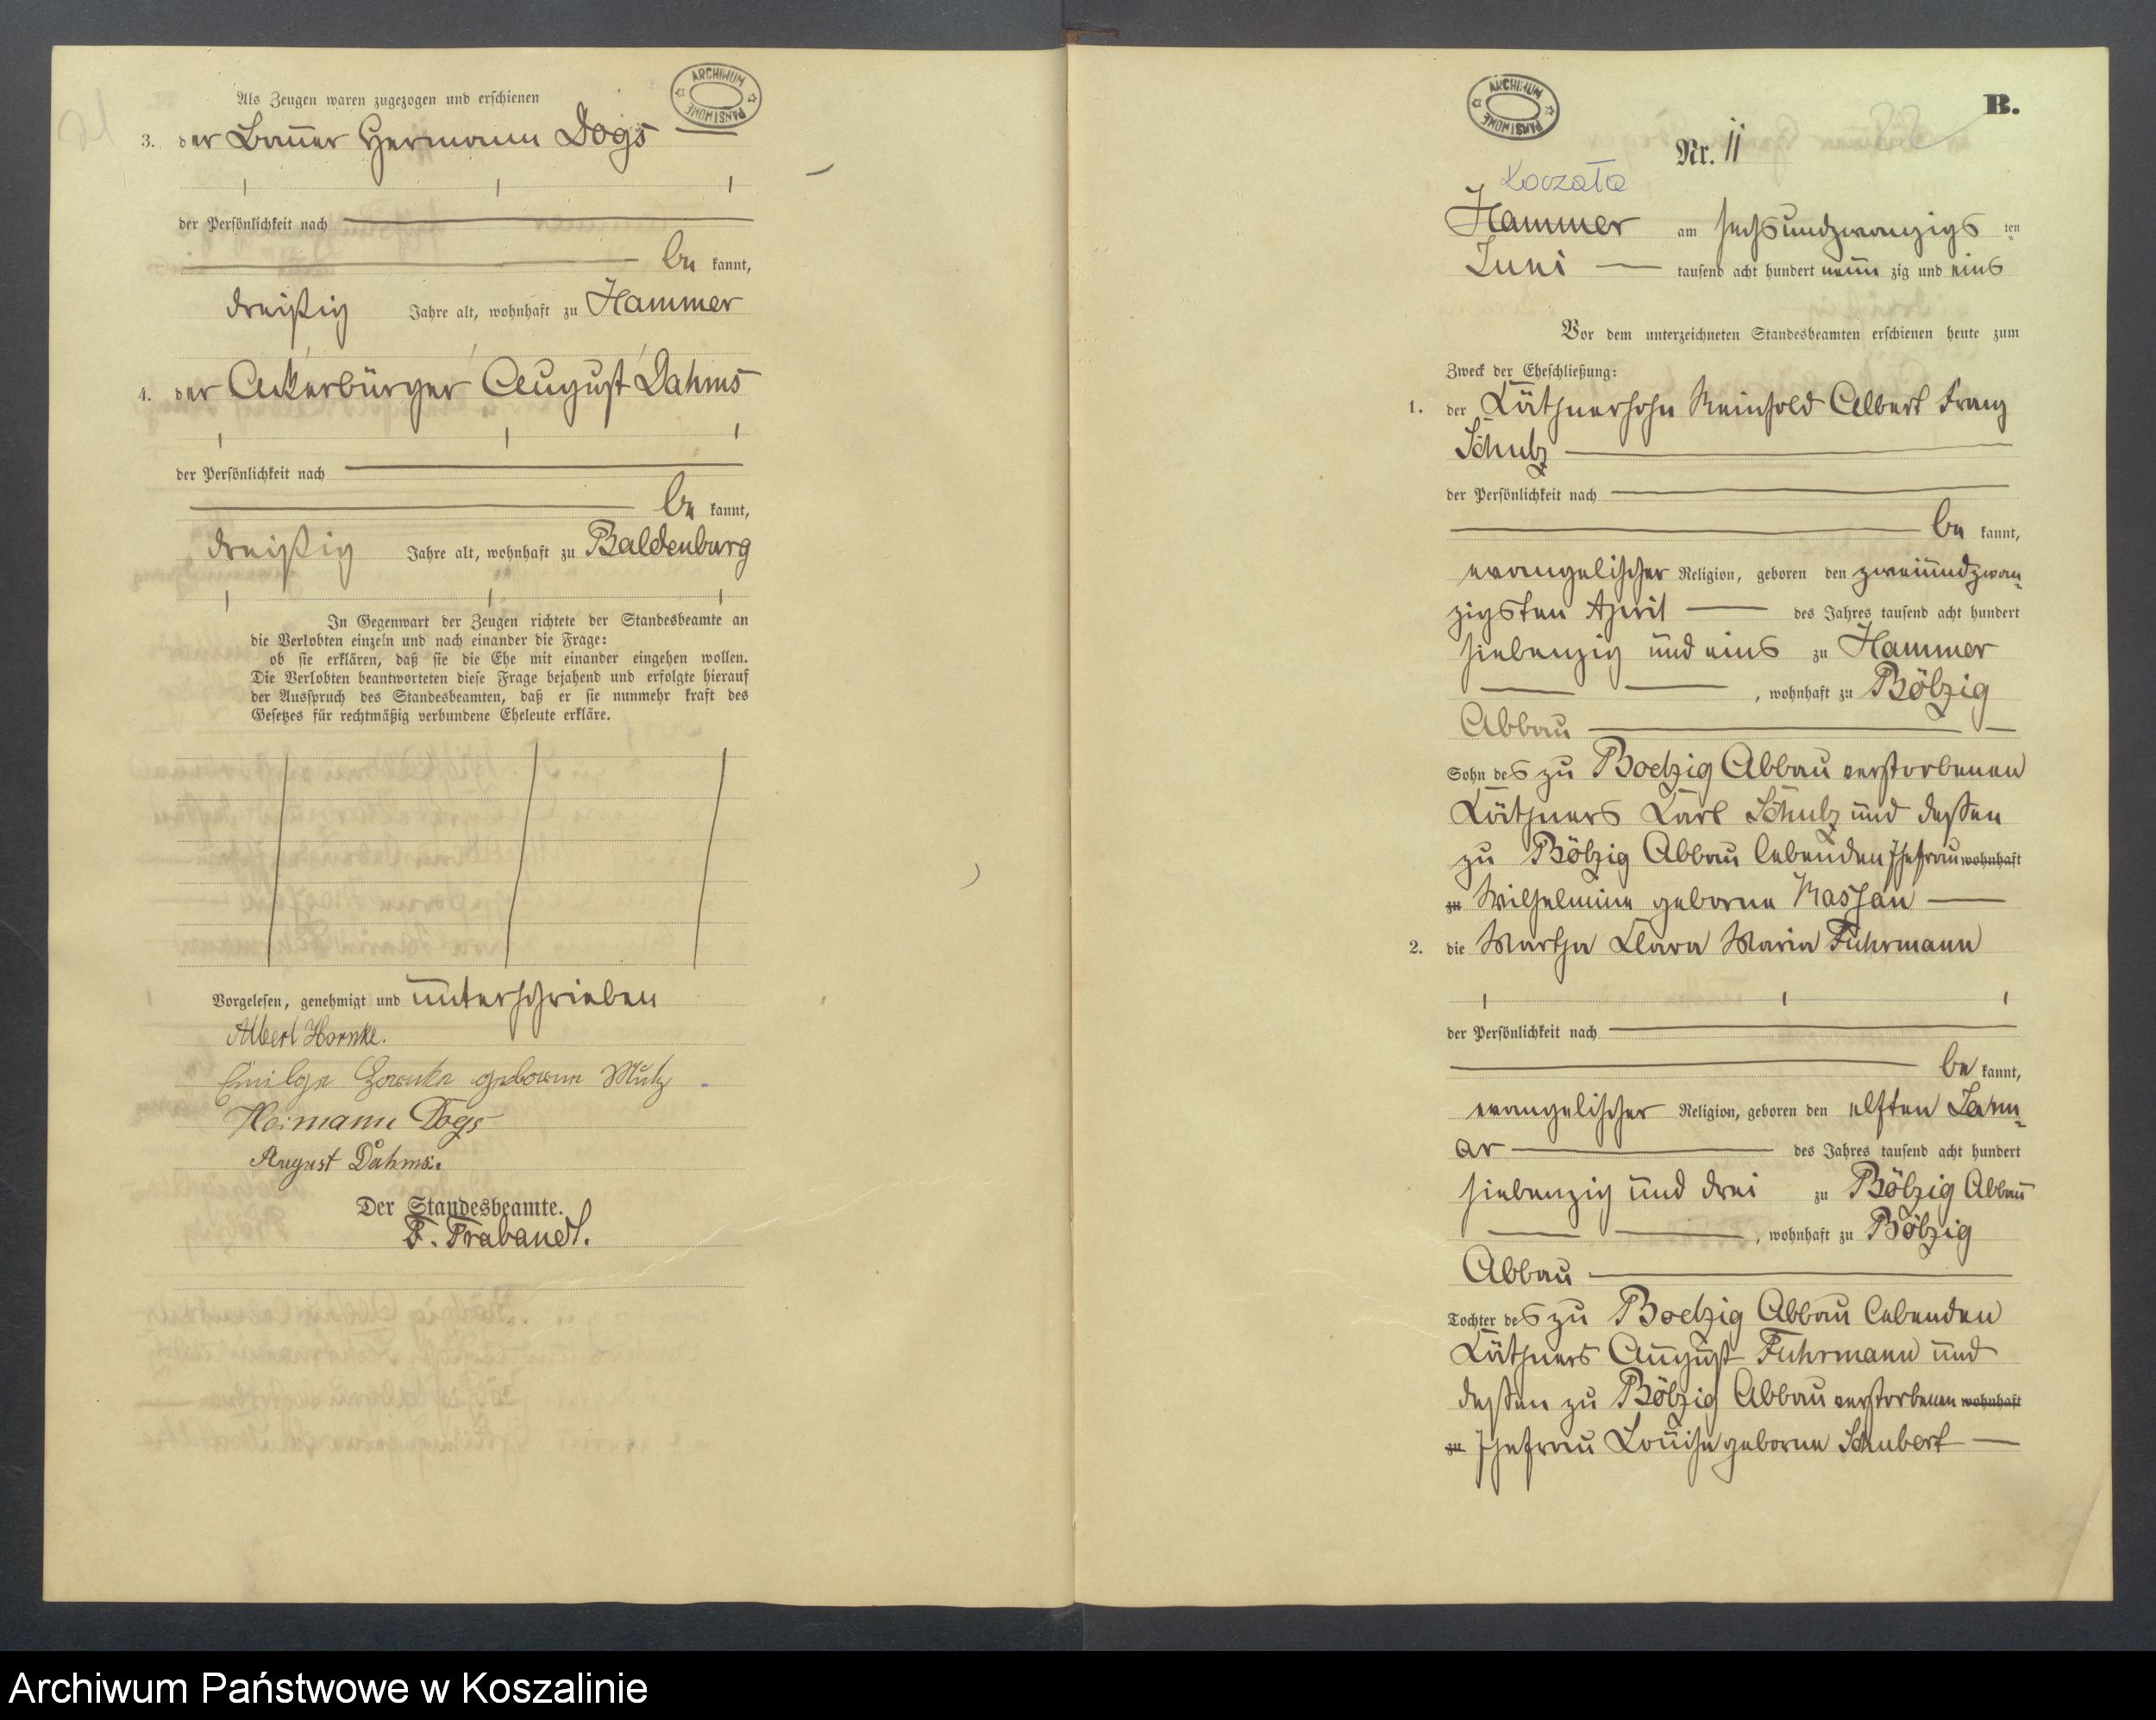 Als Zeugen waren zugezogen und erschienen
ARCHIWUM PAŃSTWOWE
3. der Bauer Hermann Dogs
der Persönlichkeit nach
be kannt,
dreißig Jahre alt, wohnhaft zu Hammer
4. der Ackerbürger August Dahms
der Persönlichkeit nach
be kannt,
dreißig Jahre alt, wohnhaft zu Baldenburg
In Gegenwart der Zeugen richtete der Standesbeamte an
die Verlobten einzeln und nach einander die Frage:
ob sie erklären, daß sie die Ehe mit einander eingehen wollen.
Die Verlobten beantworteten diese Frage bejahend und erfolgte hierauf
der Ausspruch des Standesbeamten, daß er sie nunmehr kraft des
Gesetzes für rechtmäßig verbundene Eheleute erkläre.
Vorgelesen, genehmigt und unterschrieben
Albert Hornke.
geborene
Hermann Dogs
August Dahms.
Der Standesbeamte.
F. Trabandt.
ARCHIWUM PAŃSTWOWE
B.
Nr. 11
Koczała
Hammer am sechsundzwanzigs ten
Juni tausend acht hundert neun zig und eins
Vor dem unterzeichneten Standesbeamten erschienen heute zum
Zweck der Eheschließung:
1. der Käthnersohn Reinhold Albert Franz
Schulz
der Persönlichkeit nach
be kannt,
evangelischer Religion, geboren den zweiundzwan-
zigsten April des Jahres tausend acht hundert
siebenzig und eins zu Hammer
, wohnhaft zu Bölzig
Abbau
Sohn des zu Boelzig Abbau verstorbenen
Käthners Karl Schulz und dessen
zu Bölzig Abbau lebenden Ehefrau wohnhaft
zu Wilhelmine geborne Maschan
2. die Martha Klara Maria Fuhrmann
der Persönlichkeit nach
be kannt,
evangelischer Religion, geboren den elften Janu-
ar des Jahres tausend acht hundert
siebenzig und drei zu Bölzig Abbau
, wohnhaft zu Bölzig
Abbau
Tochter des zu Boelzig Abbau lebenden
Käthners August Fuhrmann und
dessen zu Bölzig Abbau verstorbenen wohnhaft
zu Ehefrau Louise geborne Schubert
Archiwum Państwowe w Koszalinie